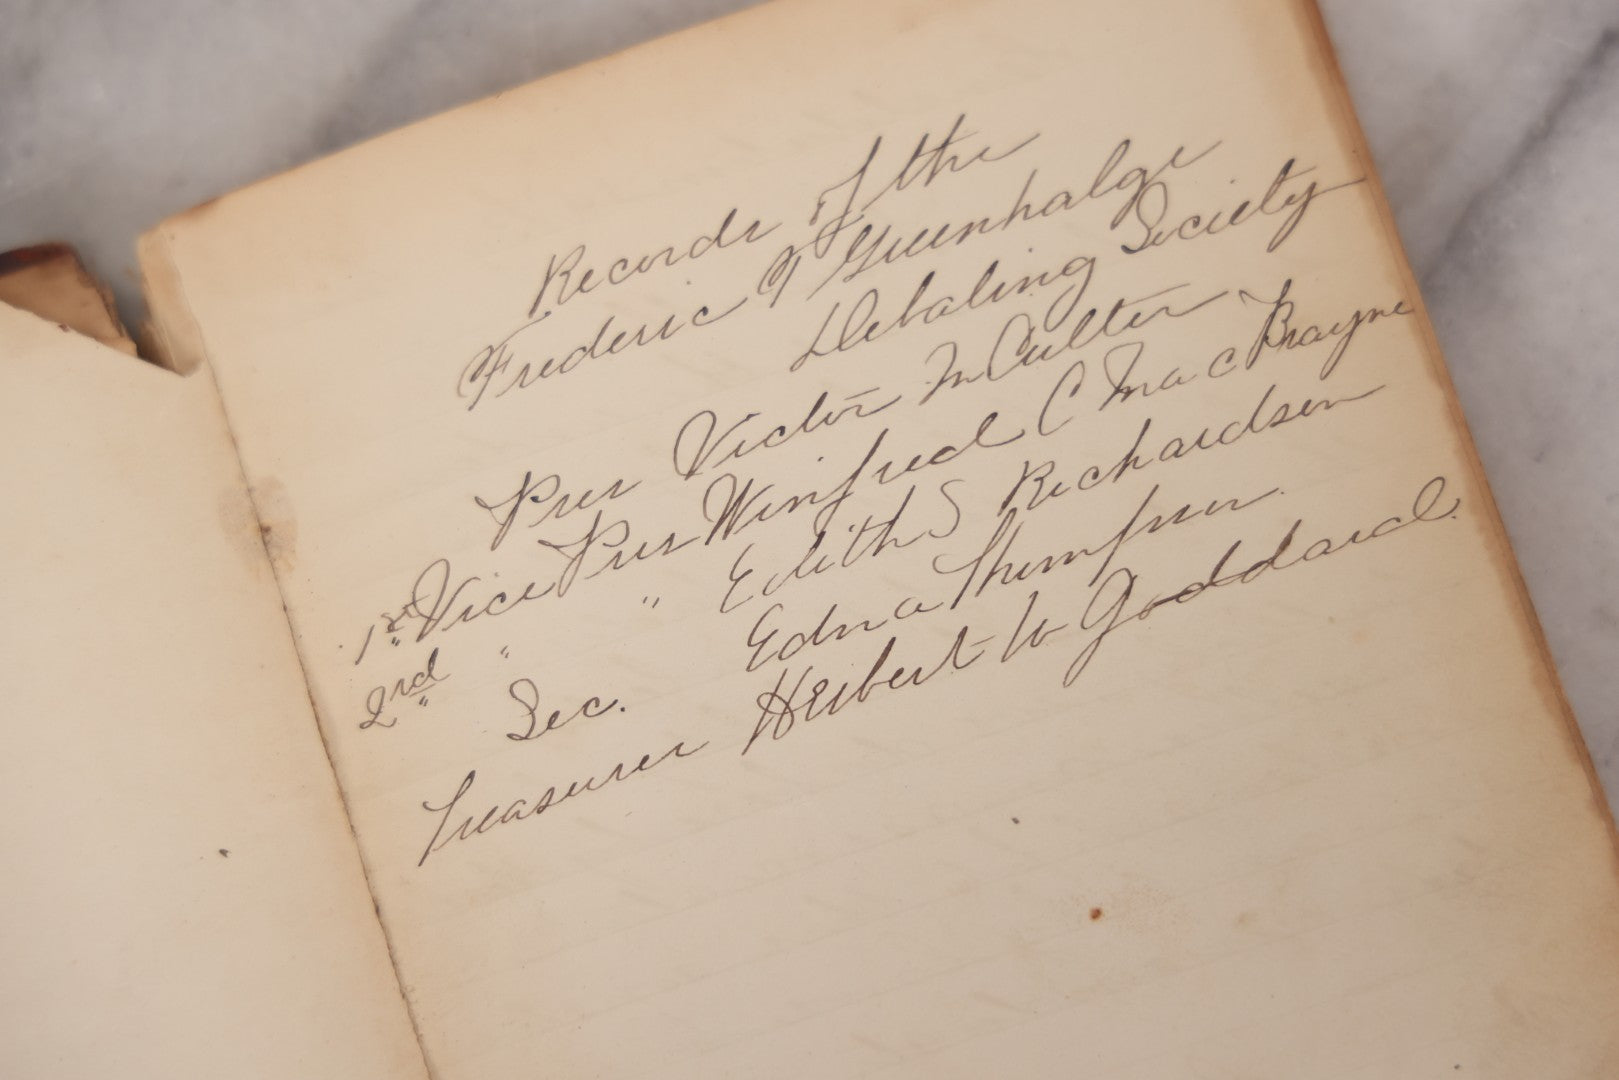 Records of the
Frederic T Greenhalge
Debating Society
Pres Victor M Culter
1st Vice Pres Winfred C MacBrayne
2nd " " Edith S Richardson
Sec. Edna Thompson.
Treasurer Herbert W Goddard.